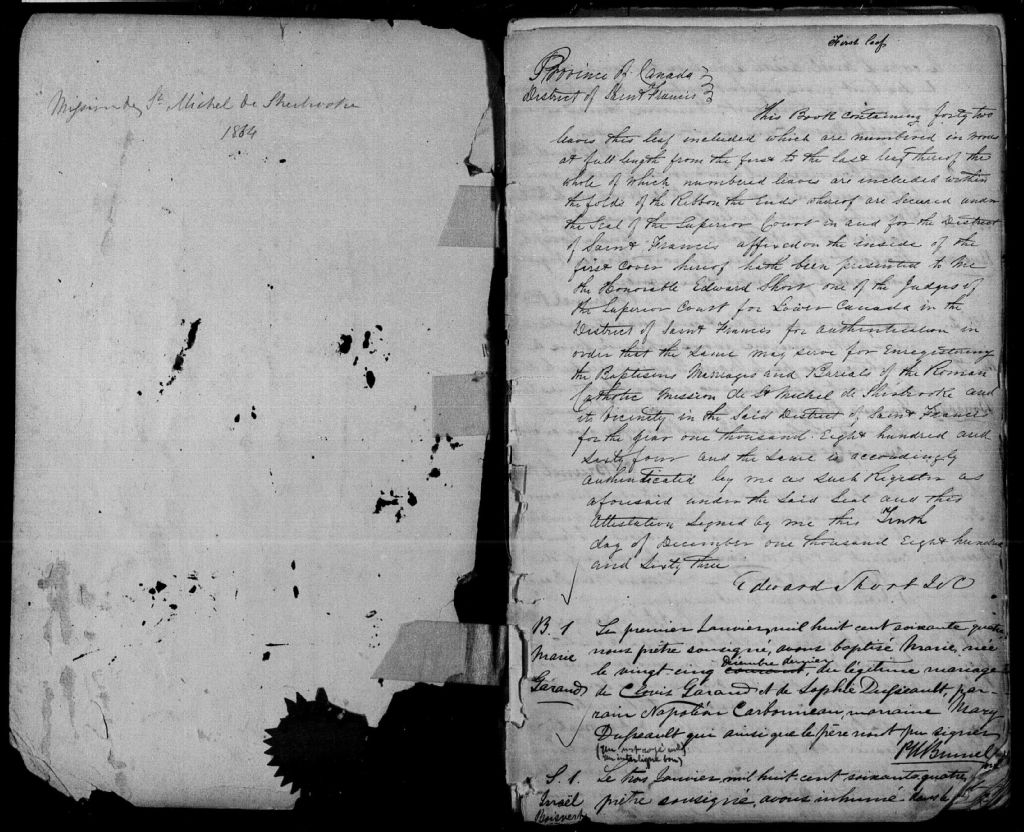 Mission de St. Michel de Sherbrooke
1864
First leaf
Province of Canada
District of Saint Francis
This Book containing forty two
leaves this leaf included which are numbered in words
at full length from the first to the last leaf thereof the
whole of which numbered leaves are included within
the folds of the Ribbon the Ends whereof are secured under
the Seal of the Superior Court in and for the District
of Saint Francis affixed on the inside of the
first cover hereof hath been presented to me
the Honorable Edward Short one of the Judges of
the Superior Court for Lower Canada in the
District of Saint Francis for authentication in
order that the same may serve for Enregistering
the Baptisms Marriages and Burials of the Roman
Catholic Mission de St Michel de Sherbrooke and
its vicinity in the said District of Saint Francis
for the year one thousand Eight hundred and
sixty four and the same is accordingly
authenticated by me as such Register as
aforesaid under the said Seal and this
Attestation signed by me this Tenth
day of December one thousand Eight hundred
and sixty three
Edward Short
B. 1
Marie
Garand
Le premier Janvier, mil huit cent soixante quatre
nous prêtre soussigné, avons baptisé Marie, née
le vingt-cinq courant, décembre dernier du légitime mariage
de Clovis Garand et de Sophie Dusseault, par-
rain Napoléon Carbonneau, marraine Mary
Dusseault qui ainsi que le père n'ont pu signer
(Un mot rayé nul)
un interligne bon)
P. H. Brunel
S. 1.
Israël
Boisvert
Le trois Janvier, mil huit cent soixante quatre,
prêtre soussigné, avons inhumé dans le